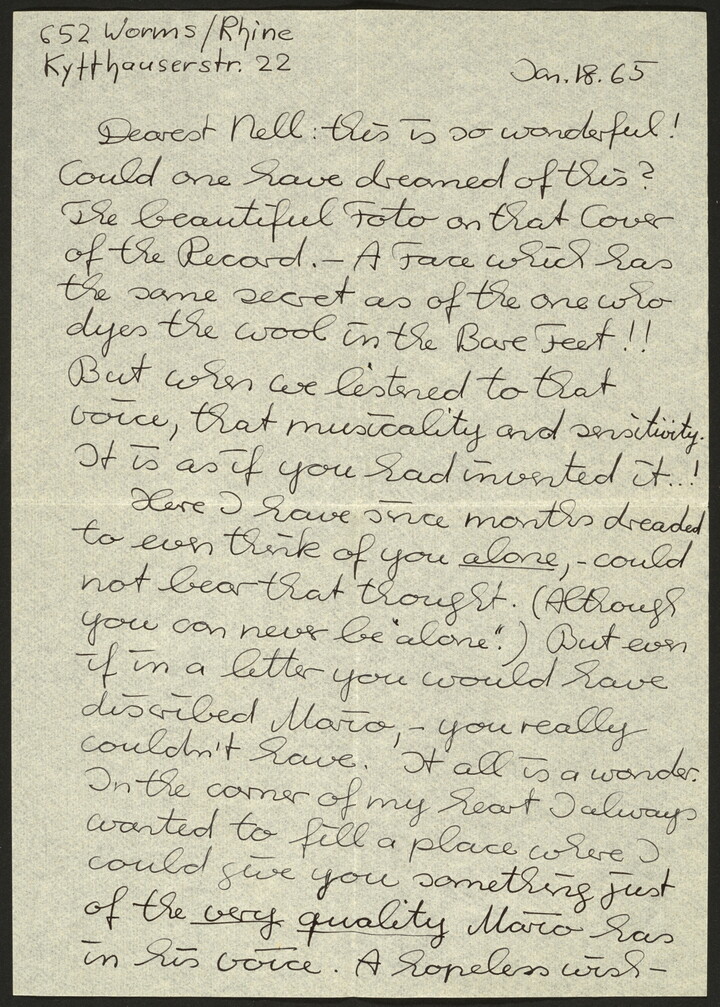 652 Worms/Rhine
Kyffhauserstr. 22
Jan. 18. 65
Dearest Nell: this is so wonderful!
Could one have dreamed of this?
The beautiful Foto on that Cover
of the Record. – A Face which has
the same secret as of the one who
dyes the wool in the Bare Feet!!
But when we listened to that
voice, that musicality and sensitivity.
It is as if you had invented it...!
Here I have since months dreaded
to even think of you alone, - could
not bear that thought. (Although
you can never be "alone".) But even
if in a letter you would have
described Mario, - you really
couldn't have. It all is a wonder.
In the corner of my heart I always
wanted to fill a place where I
could give you something just
of the very quality Mario has
in his voice. A hopeless wish –